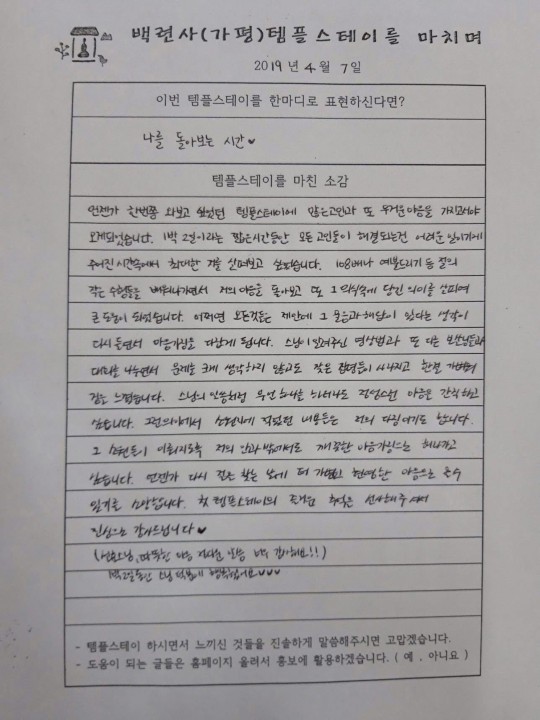 백련사(가평)템플스테이를 마치며
2019 년 4 월 7 일
이번 템플스테이를 한마디로 표현하신다면?
나를 돌아보는 시간♥
템플스테이를 마친 소감
언젠가 한번쯤 와보고 싶었던 템플스테이에 많은고민과 또 무거운 마음을 가지고서야
오게되었습니다. 1박 2일이라는 짧은시간동안 모든 고민들이 해결되는건 어려운 일이기에
주어진 시간속에서 최대한 저를 살펴보고 싶었습니다. 108배나 예불드리기 등 절의
작은 수행들을 배워나가면서 저의 마음을 돌아보고 또 그 의식속에 담긴 의미를 살피며
큰 도움이 되었습니다. 어쩌면 모든것들은 제안에 그 물음과 해답이 있다는 생각이
다시 들면서 마음가짐을 다잡게 됩니다. 스님이 알려주신 명상법과 또 다른 보살님들과
대화를 나누면서 문제를 크게 생각하지 않고도 작은 집념들이 사라지고 한결 가벼워
짐을 느꼈습니다. 스님의 말씀처럼 무언 하나를 하더라도 진실으런 마음을 간직하고
싶습니다. 그런의미에서 소원지에 적었던 내용들은 저의 다짐이기도 합니다.
그 소원들이 이뤄지도록 저의 안과 밖에서도 깨끗한 마음가짐으로 해나가고
싶습니다. 언젠가 다시 절을 찾는 날에 더 가볍고 현명한 마음으로 올수
있기를 소망합니다. 첫 템플스테이의 추억을 선사해주셔서
진심으로 감사드립니다♥
따뜻한 마음 말씀 너무 감사해요!!)
스님 덕분에 행복했어요♥♥♥
- 템플스테이 하시면서 느끼신 것들을 진솔하게 말씀해주시면 고맙겠습니다.
- 도움이 되는 글들은 홈페이지 올려서 홍보에 활용하겠습니다. ( 예 . 아니요 )